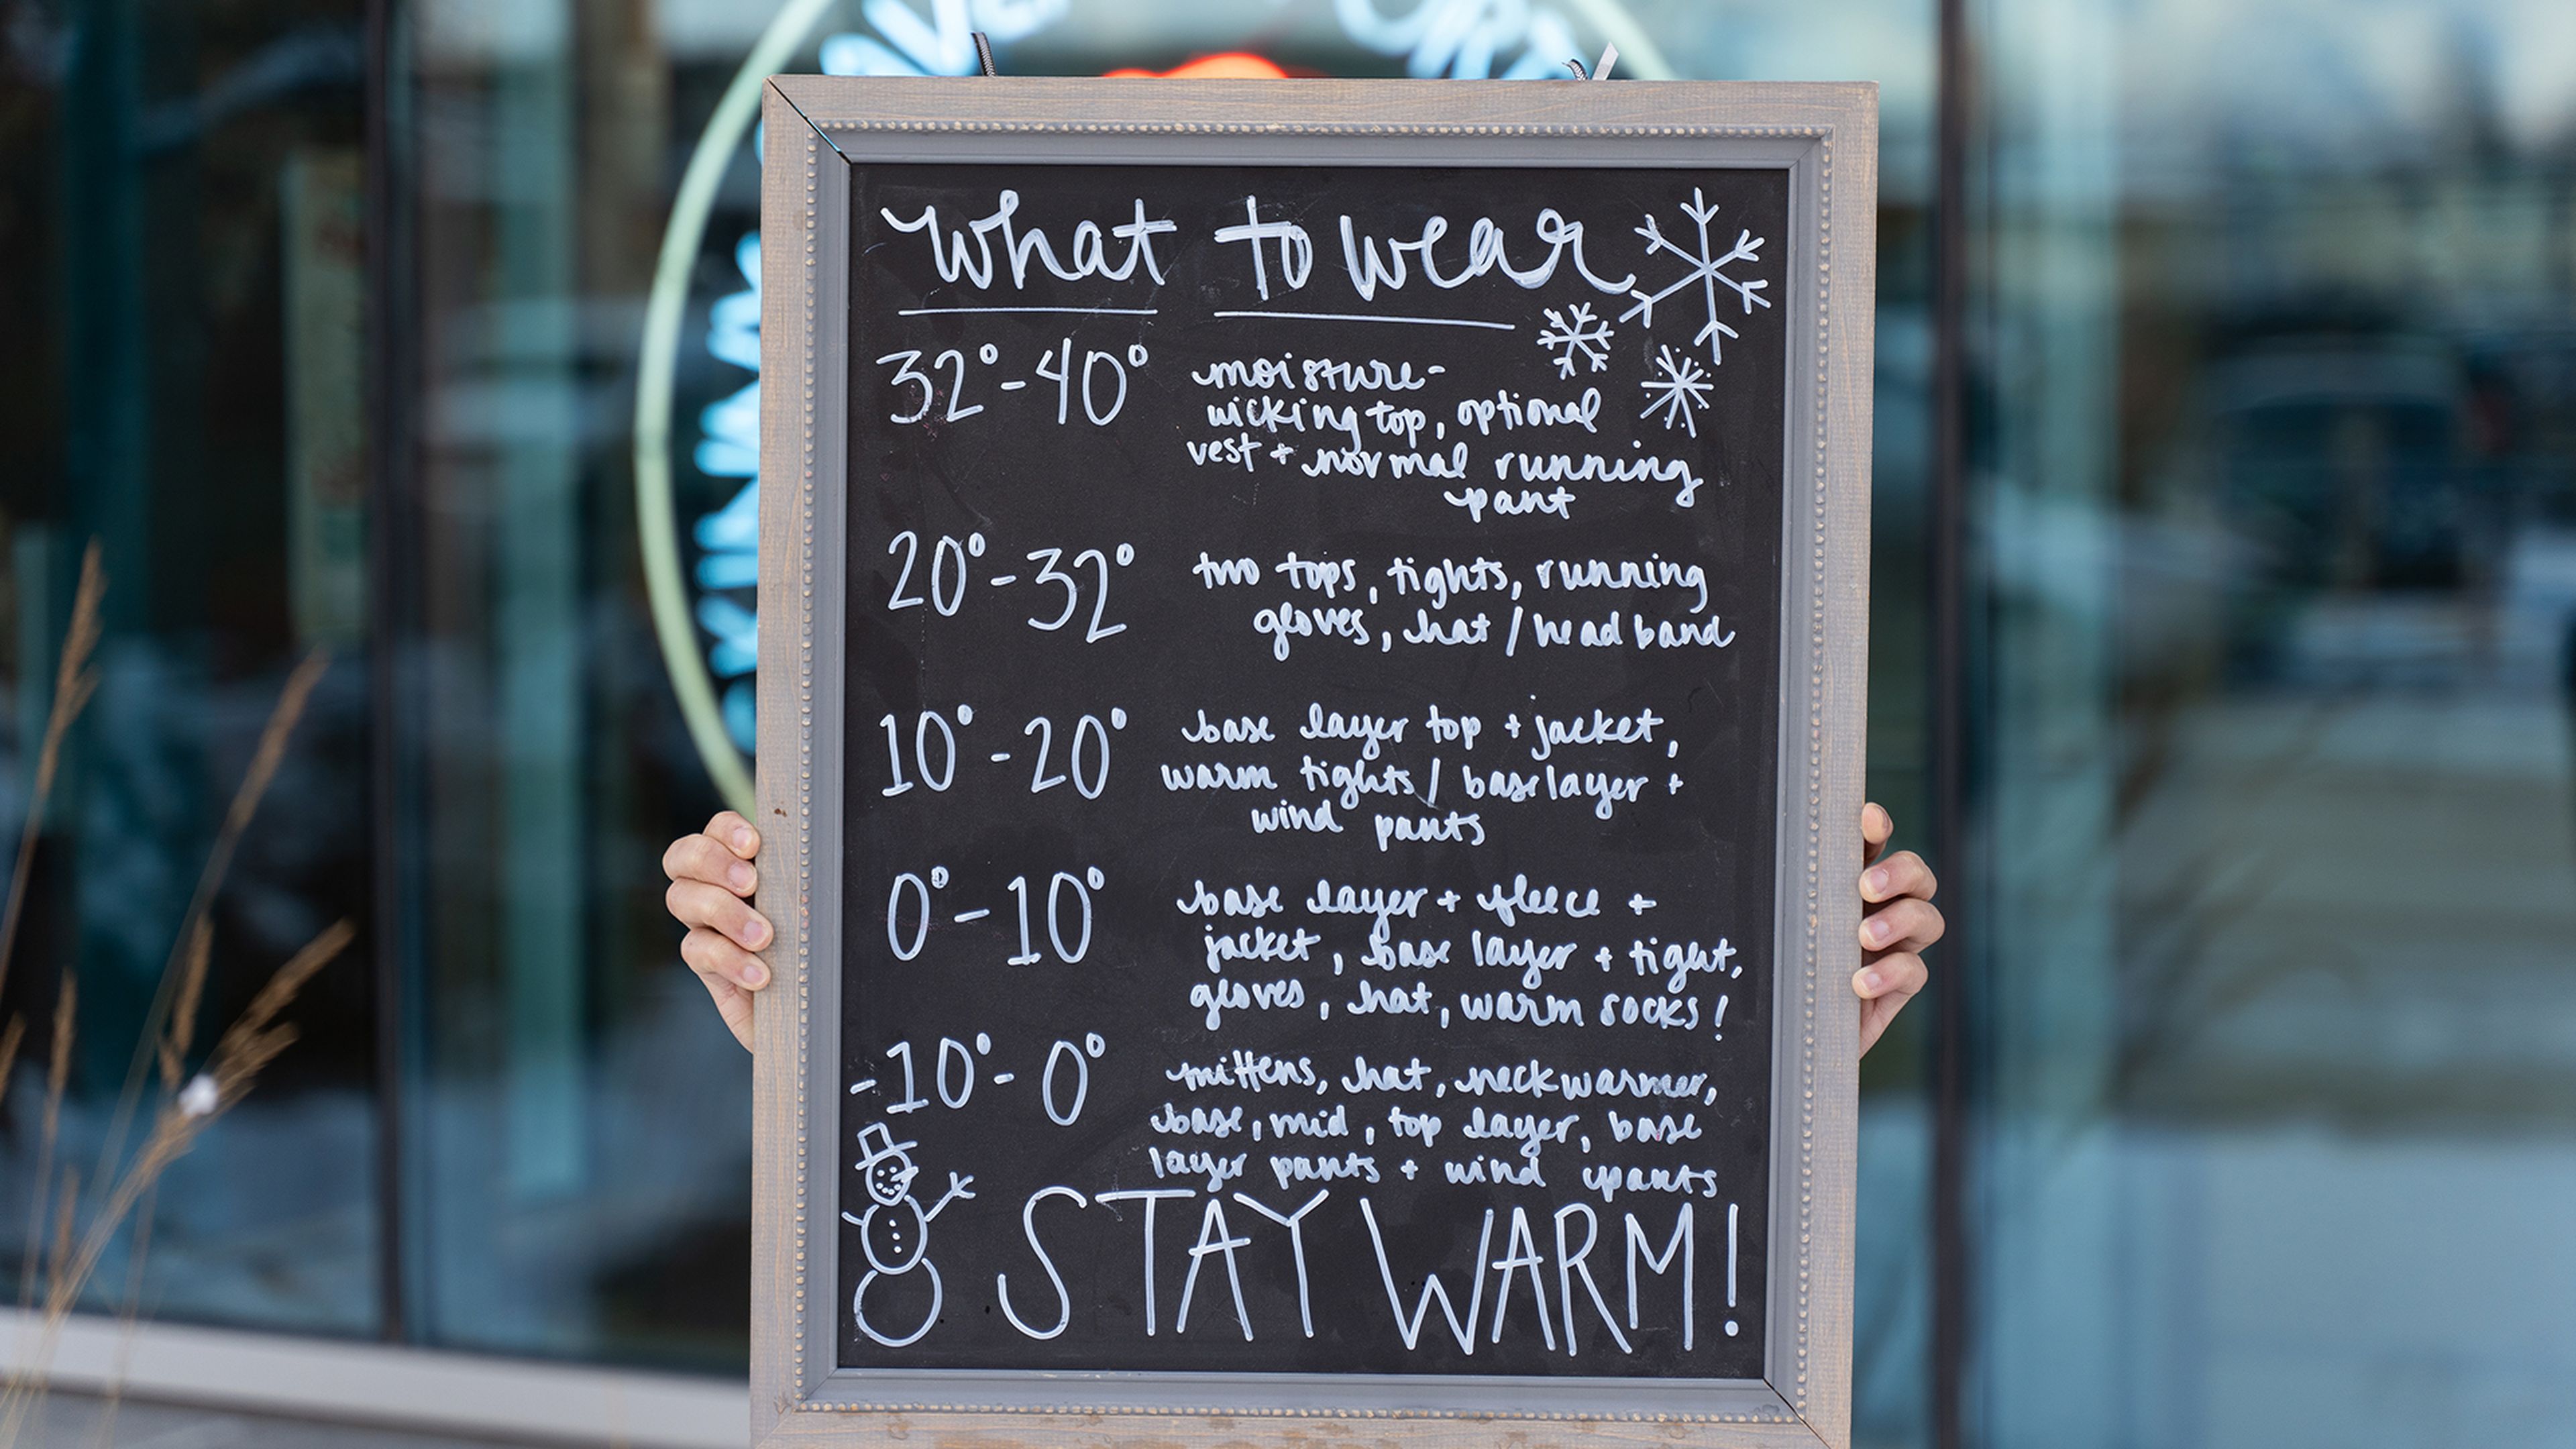 what to wear
32°-40° moisture-
wicking top, optional
vest + normal running
pant
20°-32° two tops, tights, running
gloves, hat / head band
10°-20° base layer top + jacket,
warm tights / base layer +
wind pants
0°-10° base layer + fleece +
jacket, base layer + tight,
gloves, hat, warm socks!
-10°-0° mittens, hat, neck warmer,
base, mid, top layer, base
layer pants + wind pants
STAY WARM!